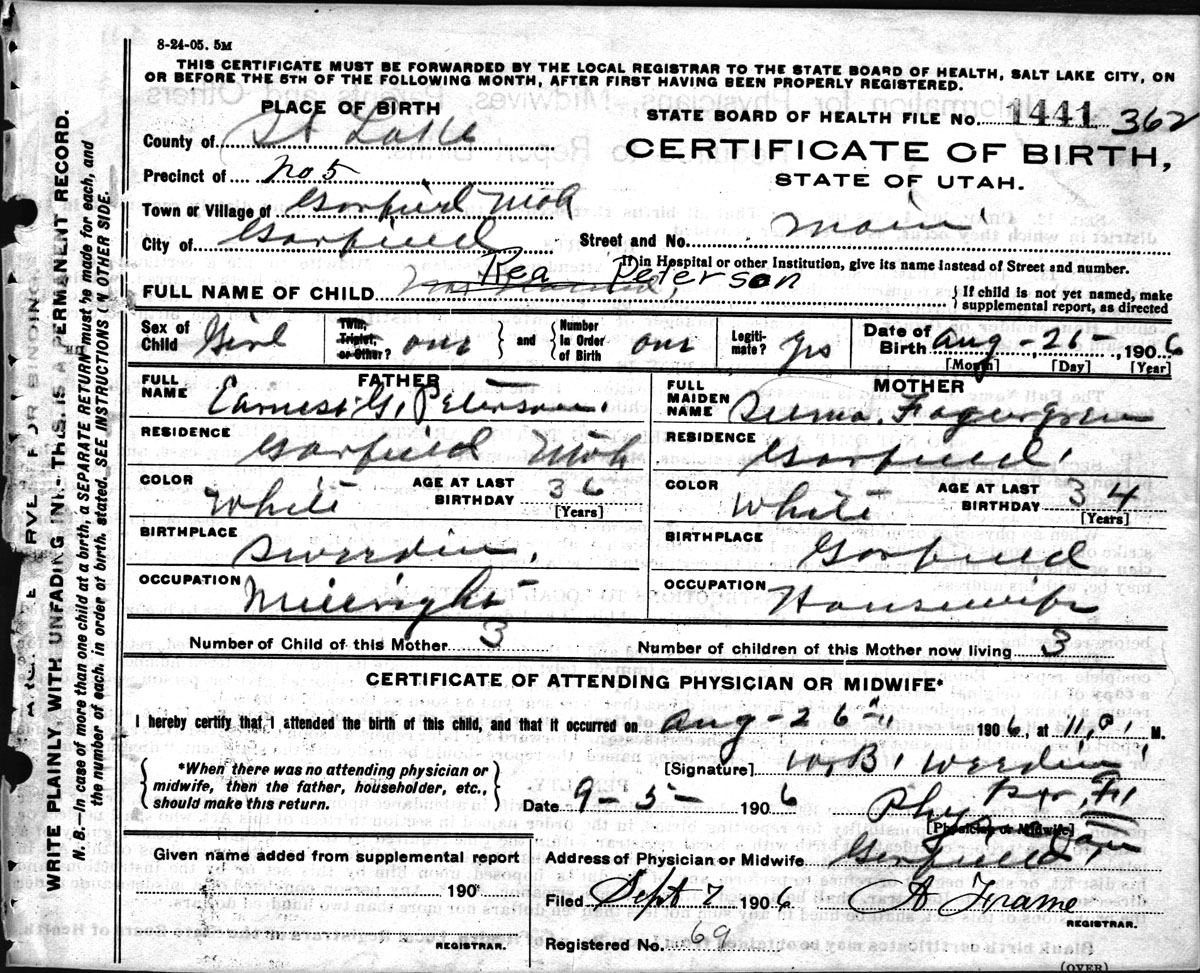 8-24-05. 5M
THIS CERTIFICATE MUST BE FORWARDED BY THE LOCAL REGISTRAR TO THE STATE BOARD OF HEALTH, SALT LAKE CITY, ON
OR BEFORE THE 5TH OF THE FOLLOWING MONTH, AFTER FIRST HAVING BEEN PROPERLY REGISTERED.
PLACE OF BIRTH
STATE BOARD OF HEALTH FILE No. 1441 362
County of St Lake
CERTIFICATE OF BIRTH,
STATE OF UTAH.
Precinct of No 5
Town or Village of Garfield Utah
City of Garfield
Street and No. Main
If in Hospital or other Institution, give its name instead of Street and number.
FULL NAME OF CHILD Rea Peterson
{If child is not yet named, make
supplemental report, as directed
Sex of Child Girl
Twin, Triplet, or Other? one
and Number in Order of Birth one
Legitimate? yes
Date of Birth Aug - 26 - 1906
[Month] [Day] [Year]
FATHER
FULL NAME Earnest G. Peterson
MOTHER
FULL MAIDEN NAME Selma Fagergren
RESIDENCE Garfield Utah
RESIDENCE Garfield
COLOR White AGE AT LAST BIRTHDAY 36 [Years]
COLOR White AGE AT LAST BIRTHDAY 34 [Years]
BIRTHPLACE Sweedin
BIRTHPLACE Garfield
OCCUPATION Millright
OCCUPATION Housewife
Number of Child of this Mother 3
Number of children of this Mother now living 3
CERTIFICATE OF ATTENDING PHYSICIAN OR MIDWIFE*
I hereby certify that I attended the birth of this child, and that it occurred on Aug - 26th 1906, at 11, M.
{*When there was no attending physician or
midwife, then the father, householder, etc.,
should make this return.}
[Signature] W. B.
Date 9 - 5 - 1906
[Physician or Midwife]
Given name added from supplemental report
190
REGISTRAR.
Address of Physician or Midwife Garfield
Filed Sept 7 1906 A Frame
REGISTRAR.
Registered No. 69
(OVER)
ARGIN RESERVED FOR BINDING
WRITE PLAINLY, WITH UNFADING INK—THIS IS A PERMANENT RECORD.
N. B.—In case of more than one child at a birth, a SEPARATE RETURN must be made for each, and
the number of each, in order of birth, stated. SEE INSTRUCTIONS ON OTHER SIDE.